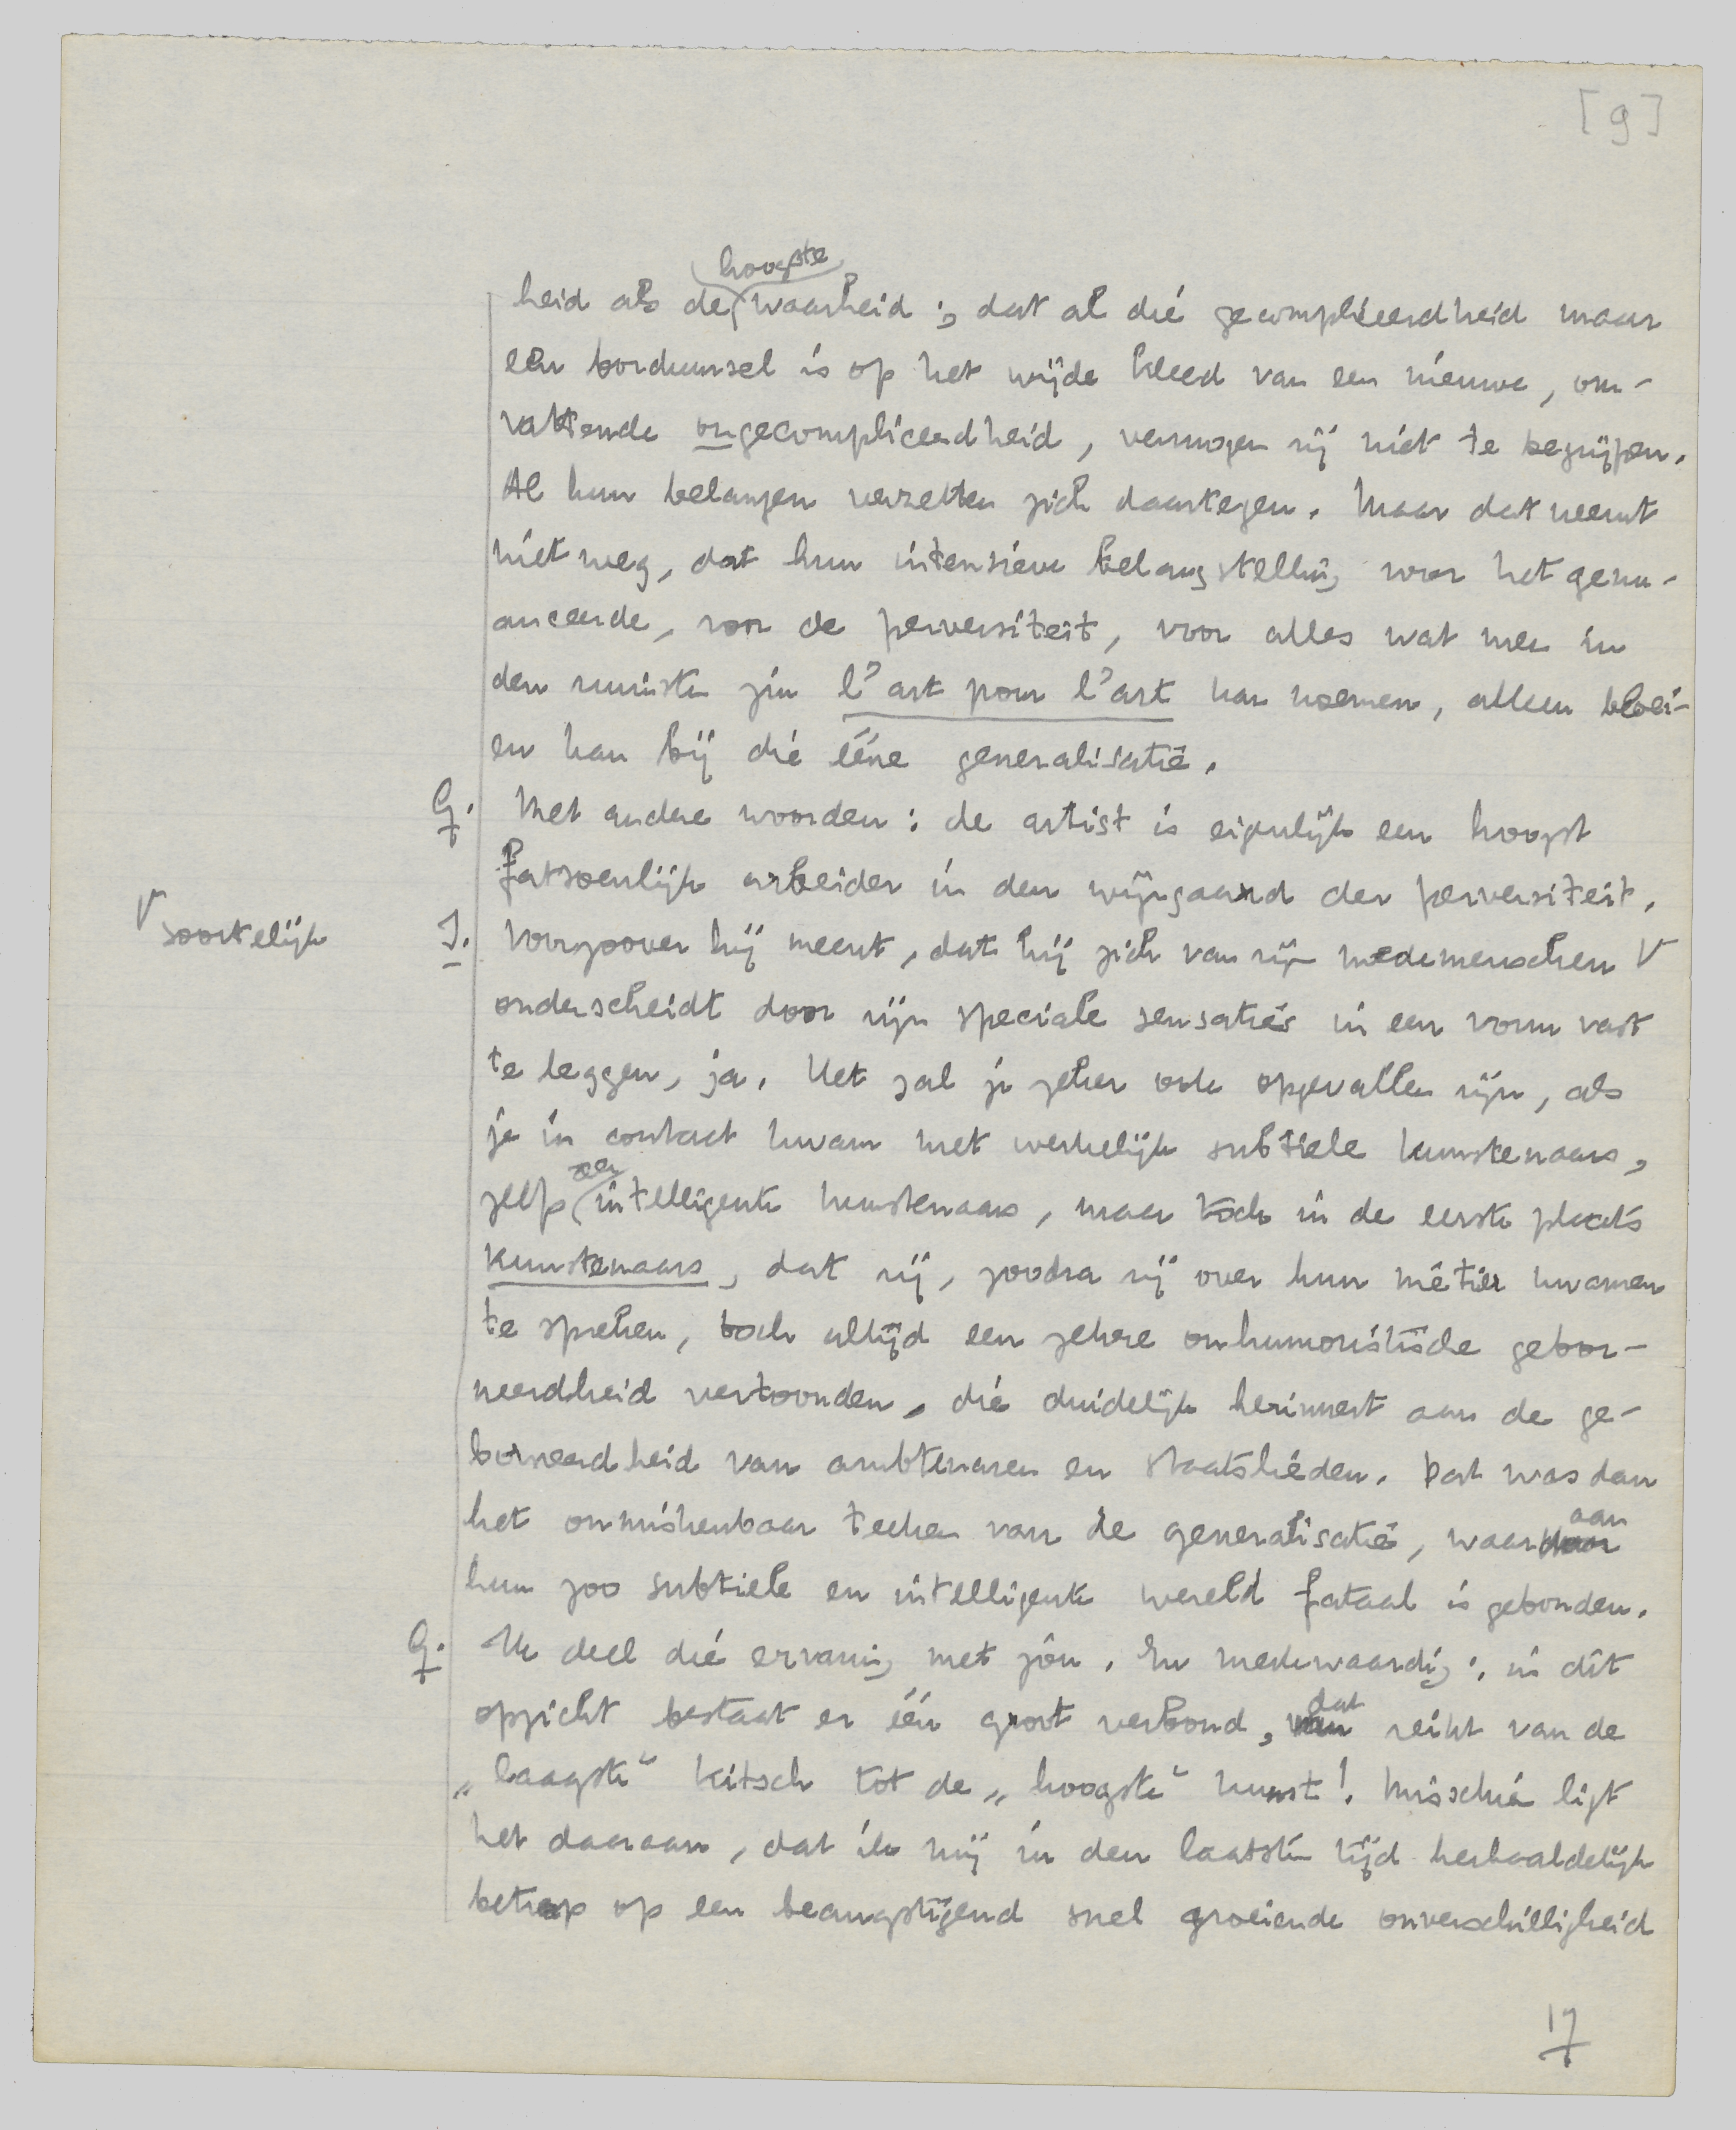 [9]
hoogste
heid als de waarheid; dat al die gecompliceerdheid maar
een borduursel is op het wijde kleed van een nieuwe, om-
vattende ongecompliceerdheid, vermogen zij niet te begrijpen.
Al hun belangen verzetten zich daartegen. Maar dat neemt
niet weg, dat hun intensieve belangstelling voor het genu-
anceerde, voor de perversiteit, voor alles wat men in
den ruimsten zin l'art pour l'art kan noemen, alleen bloei-
en kan bij die ééne generalisatie.
G. Met andere woorden: de artist is eigenlijk een hoogst
fatsoenlijk arbeider in den wijngaard der perversiteit.
V soortelijk
I. Voorzoover hij meent, dat hij zich van zijn medemenschen V
onderscheidt door zijn speciale sensaties in een vorm vast
te leggen, ja. Het zal je zeker ook opgevallen zijn, als
je in contact kwam met werkelijk subtiele kunstenaars,
zeer
zelfs intelligente kunstenaars, maar toch in de eerste plaats
kunstenaars, dat zij, zoodra zij over hun métier kwamen
te spreken, toch altijd een zekere onhumoristische gebor-
neerdheid vertoonden, die duidelijk herinnert aan de ge-
borneerdheid van ambtenaren en staatslieden. Dat was dan
het onmiskenbaar teeken van de generalisatie, waar
aan
hun zoo subtiele en intelligente wereld fataal is gebonden.
G. Ik deel die ervaring met jou. En merkwaardig: in dit
opzicht bestaat er één groot verbond, dat reikt van de
„laagste" kitsch tot de „hoogste" kunst! Misschien ligt
het daaraan, dat ik mij in den laatsten tijd herhaaldelijk
betrap op een beangstigend snel groeiende onverschilligheid
17